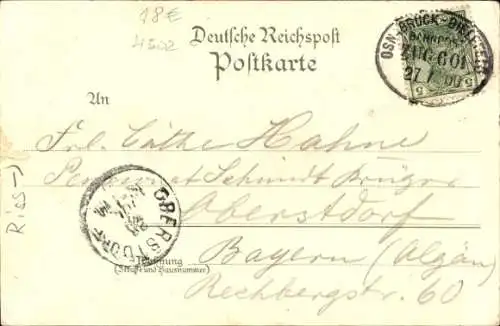 18€
4502
Deutsche Reichspost
Postkarte
OSNABRÜCK-BRACKWEDE
BAHNPOST
ZUG 601
27.7.00
5 5
An
Frl. Cäthe Hahne
Pensionat Schmidt Krüger
Oberstdorf
Bayern (Algäu)
Rechbergstr. 60
OBERSTDORF
Wohnung
(Straße und Hausnummer)
Riss→